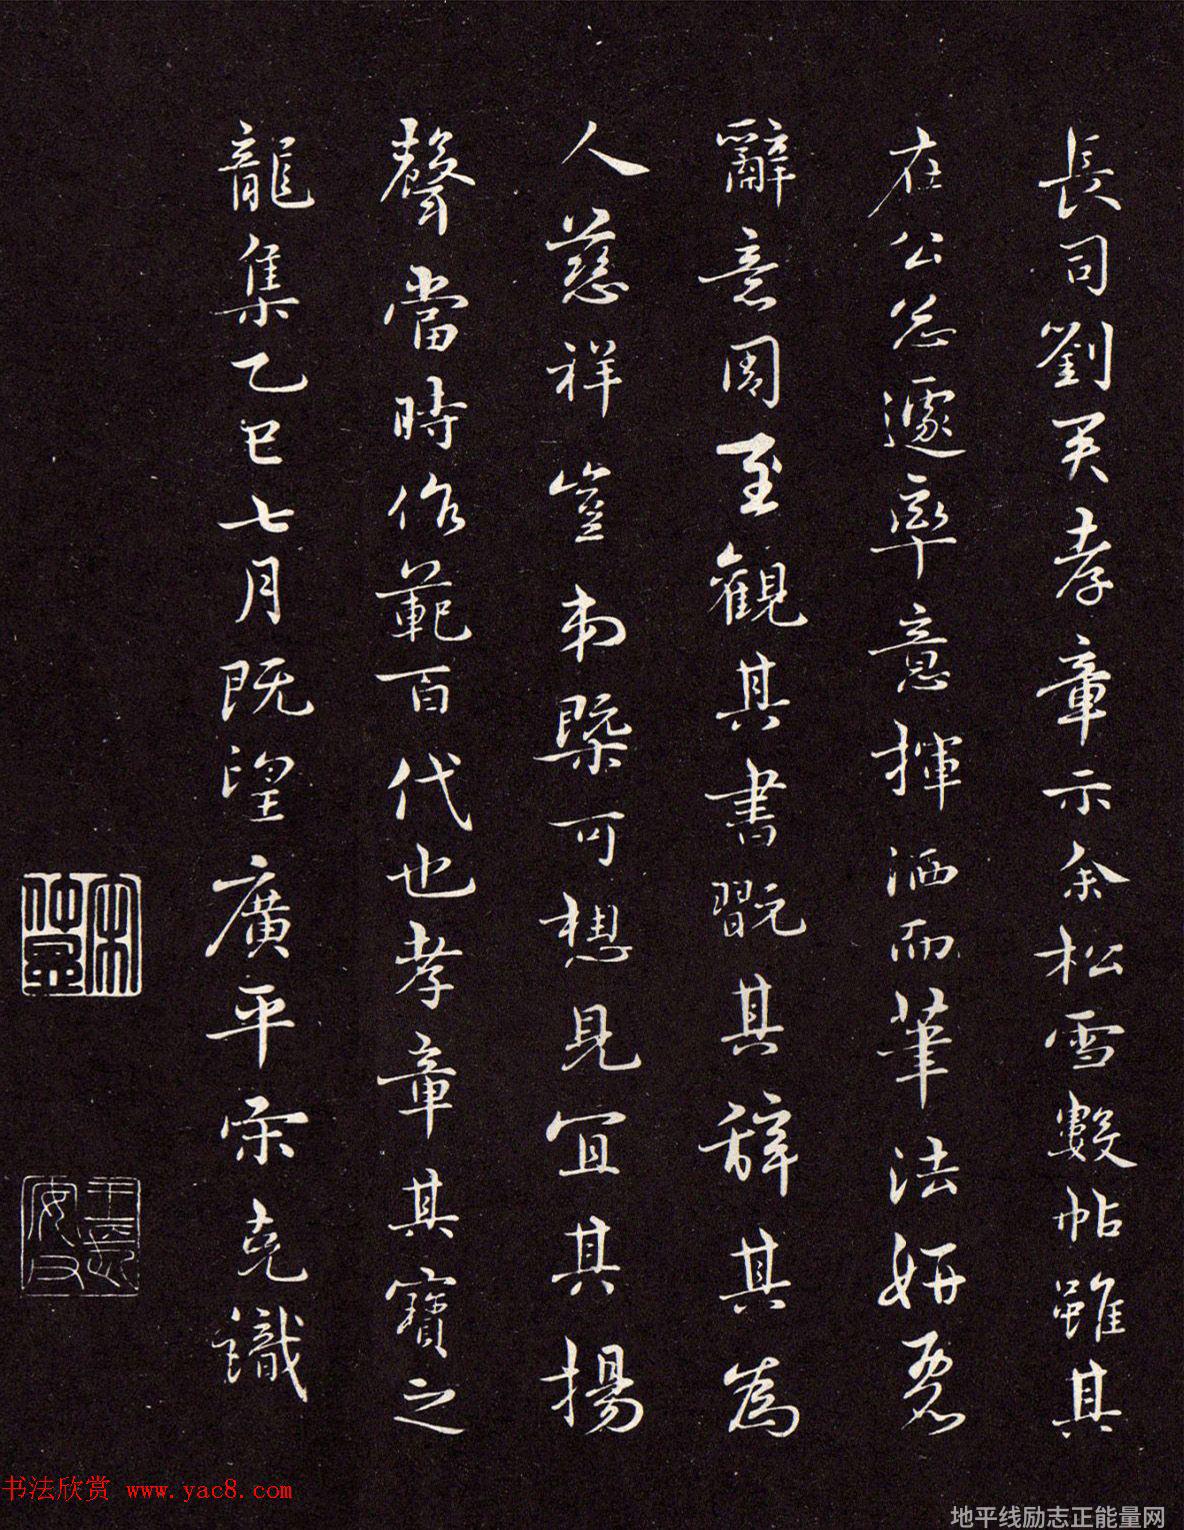 長司劉君孝章示余松雪數帖雖其
在公忩遽率意揮洒而筆法妍麗
辭意周至觀其書翫其辞其為
人慈祥豈弟槩可想見宜其揚
聲當時作範百代也孝章其寶之
龍集乙巳七月既望廣平宋克識
宋仲昷
书法欣赏 www.yac8.com
地平线励志正能量网